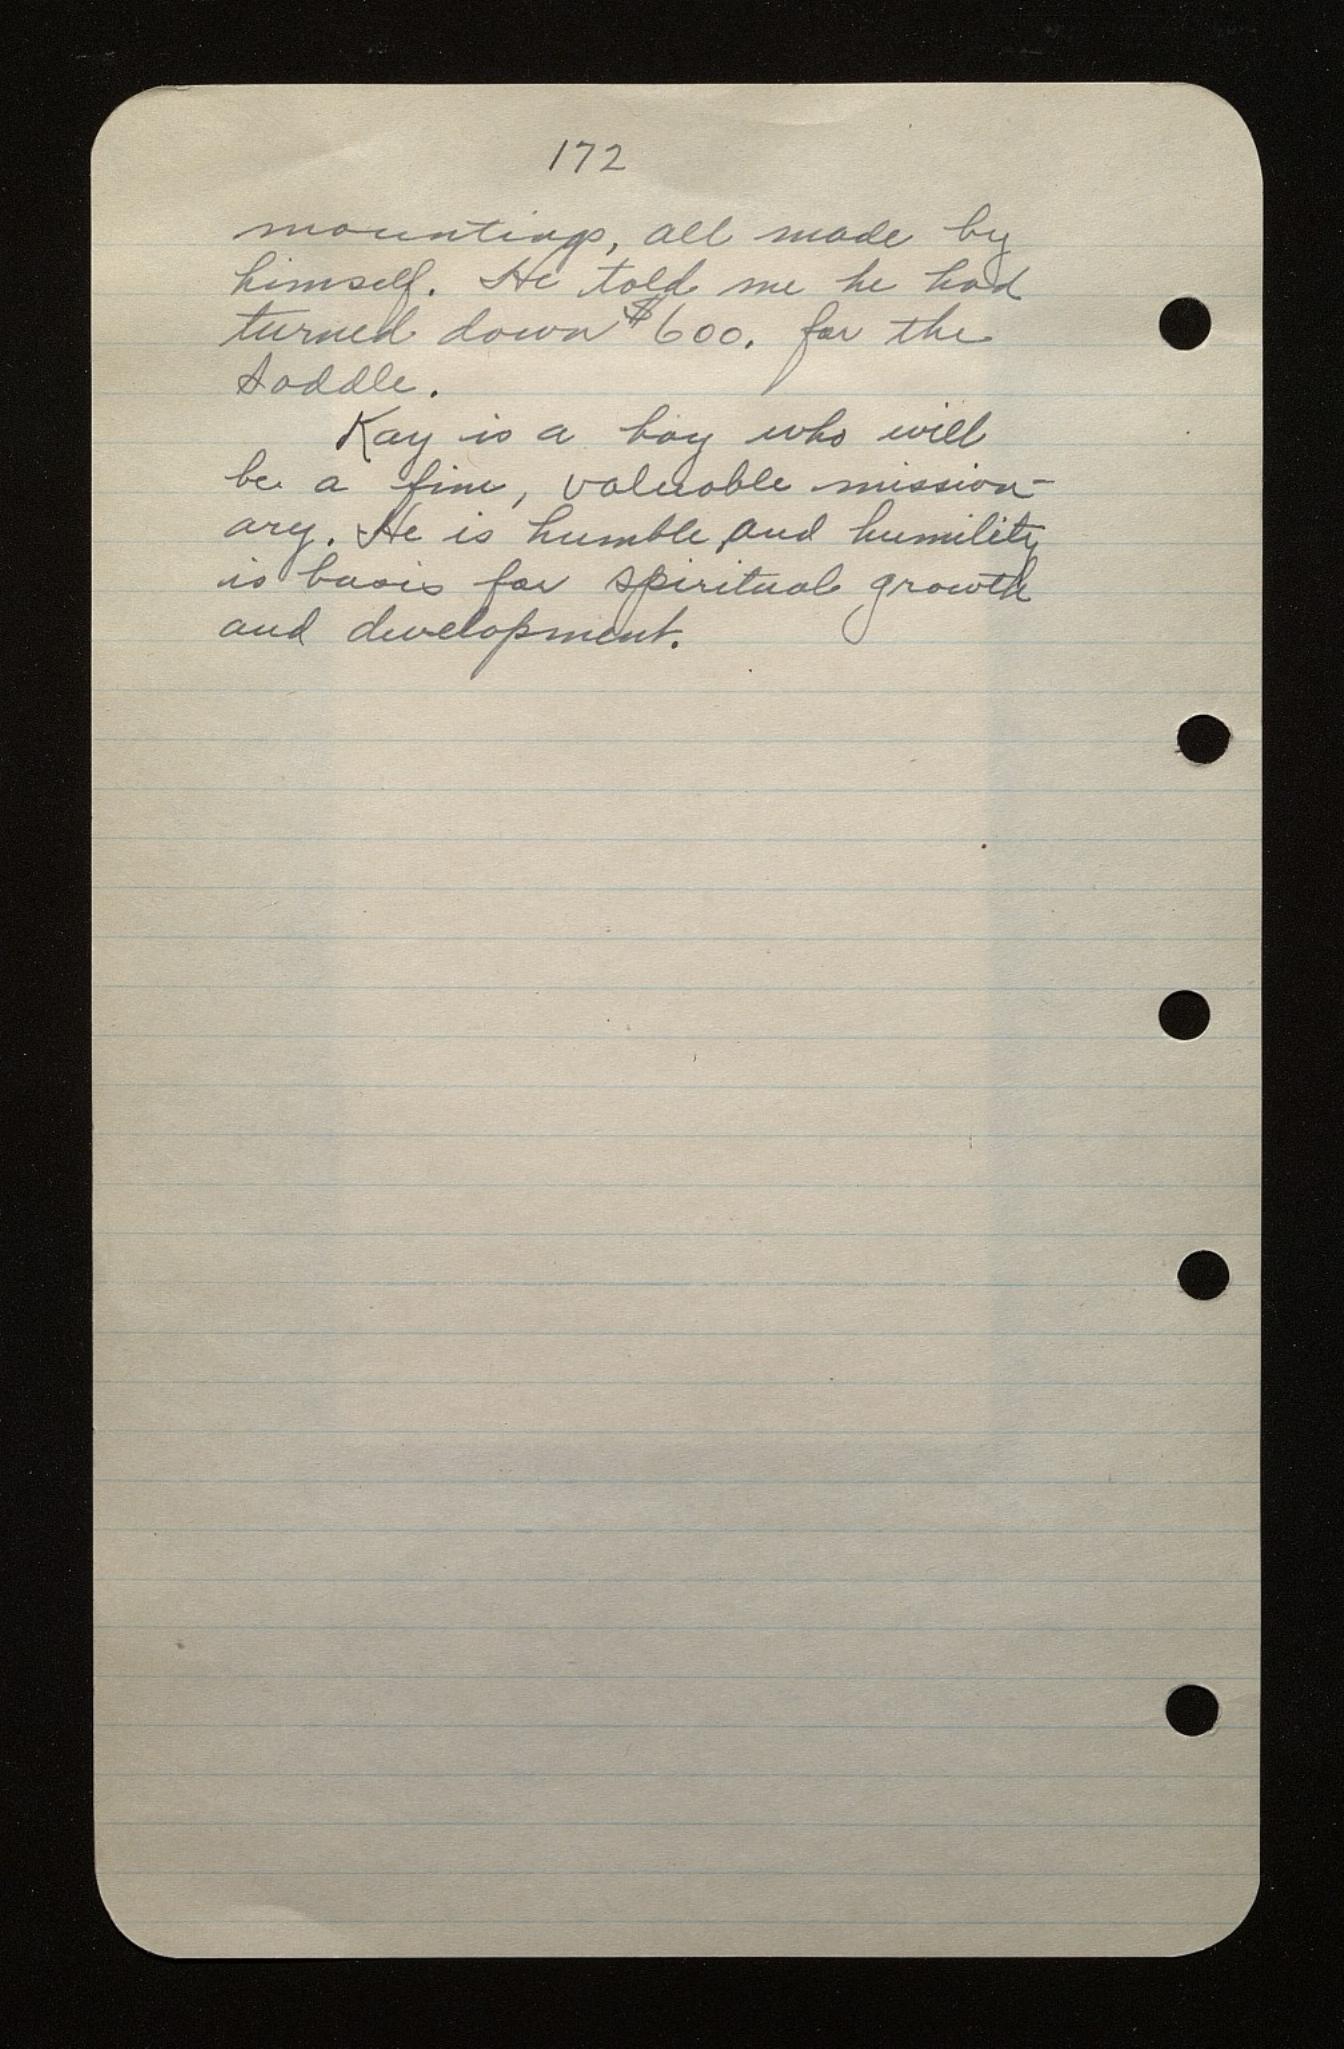 172
mountings, all made by
himself. He told me he had
turned down $600. for the
saddle.
Kay is a boy who will
be a fine, valuable mission-
ary. He is humble and humility
is basis for spiritual growth
and development.